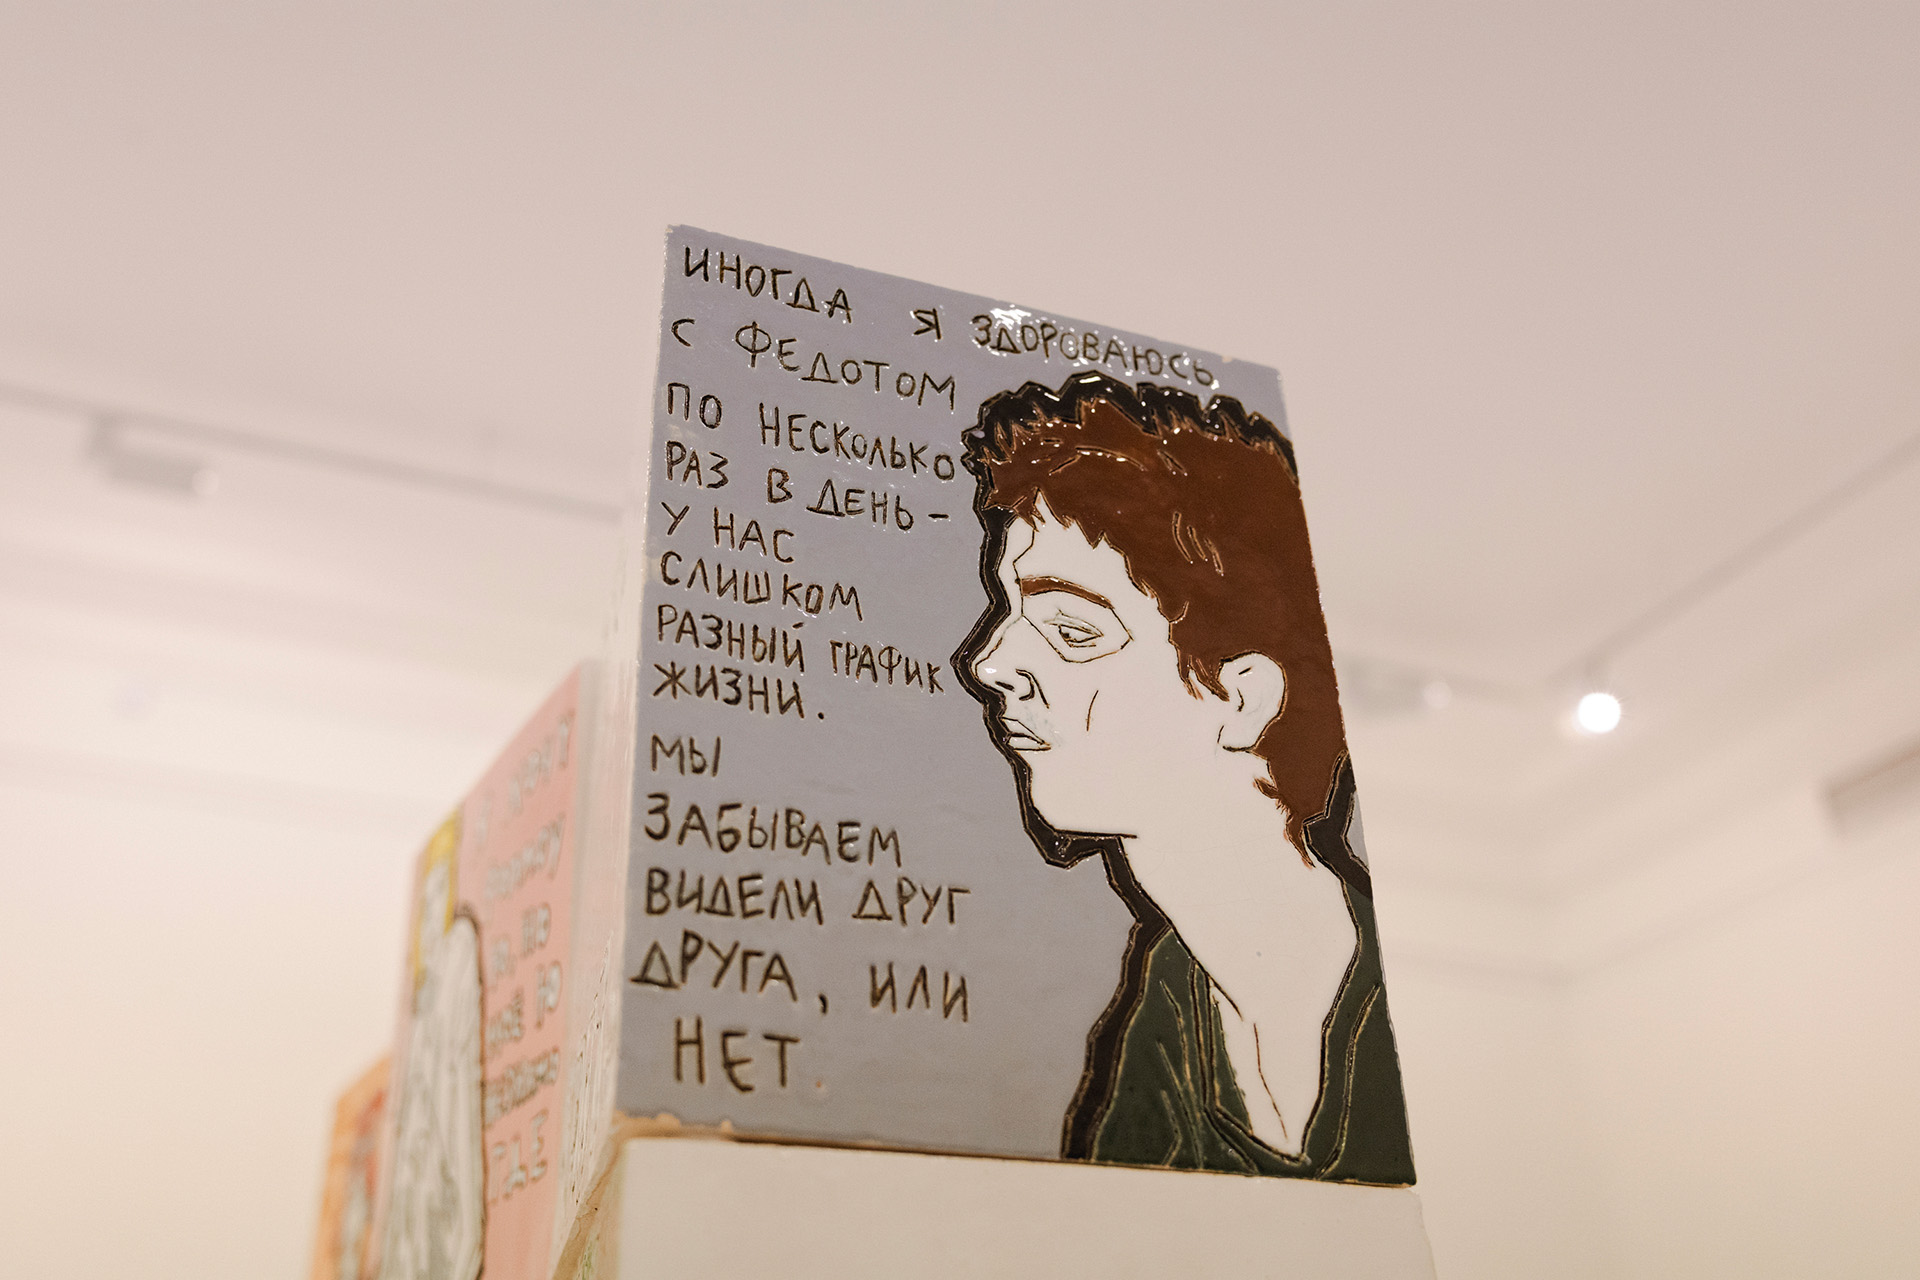 ИНОГДА Я ЗДОРОВАЮСЬ
С ФЕДОТОМ
ПО НЕСКОЛЬКО
РАЗ В ДЕНЬ –
У НАС
СЛИШКОМ
РАЗНЫЙ ГРАФИК
ЖИЗНИ.
МЫ
ЗАБЫВАЕМ
ВИДЕЛИ ДРУГ
ДРУГА, ИЛИ
НЕТ.